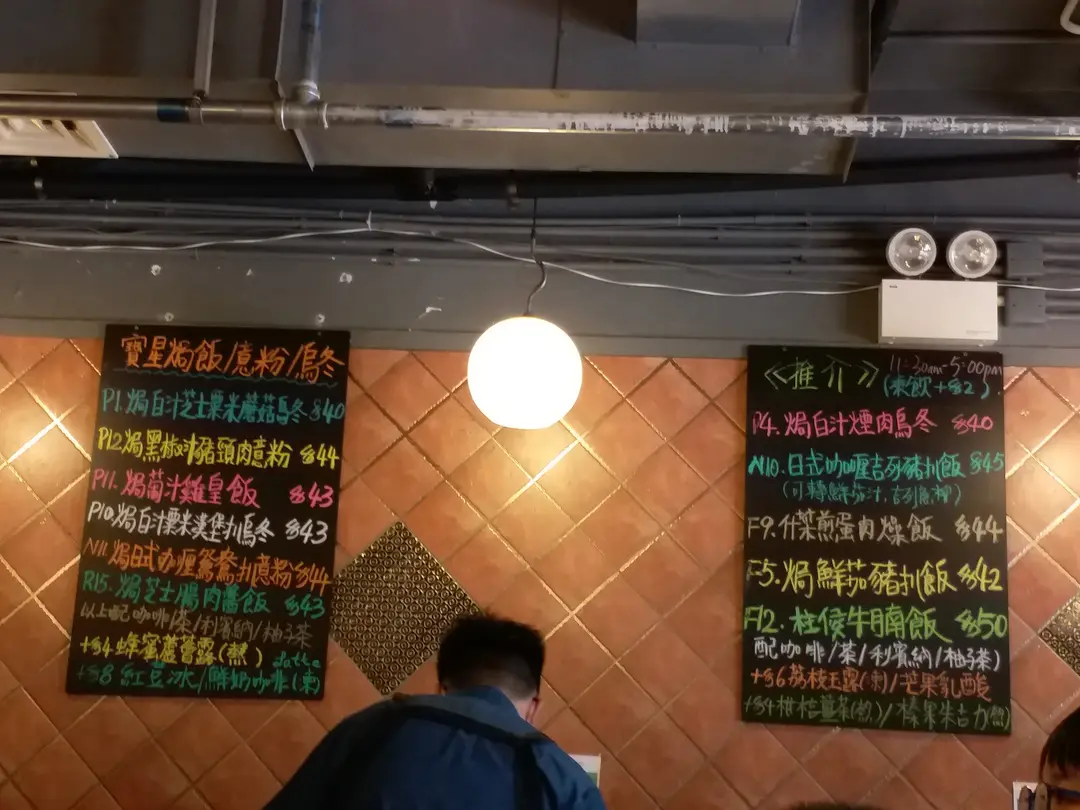 寶星焗飯/意粉/烏冬
P1.焗白汁芝士粟米蘑菇烏冬 $40
P12.焗黑椒汁豬頸肉意粉 $44
P11.焗葡汁雞皇飯 $43
P10.焗白汁粟米漢堡扒烏冬 $43
N11.焗日式咖喱鴛鴦扒意粉 $44
R15.焗芝士腸肉醬飯 $43
以上配咖啡/茶/利賓納/柚子茶
+$4 蜂蜜蘆薈露(熱)
+$8 紅豆冰/鮮奶咖啡(凍) Latte
《推介》 11:30am-5:00pm
(凍飲+$2)
P4.焗白汁煙肉烏冬 $40
N10.日式咖喱吉列豬扒飯 $45
(可轉鮮茄汁.吉列魚柳)
F9.什菜煎蛋肉燥飯 $44
F5.焗鮮茄豬扒飯 $42
F12.柱侯牛腩飯 $50
配咖啡/茶/利賓納/柚子茶)
+$6 荔枝玉露(凍)/芒果乳酸
+$4 柑桔薑茶(熱)/榛果朱古力(熱)